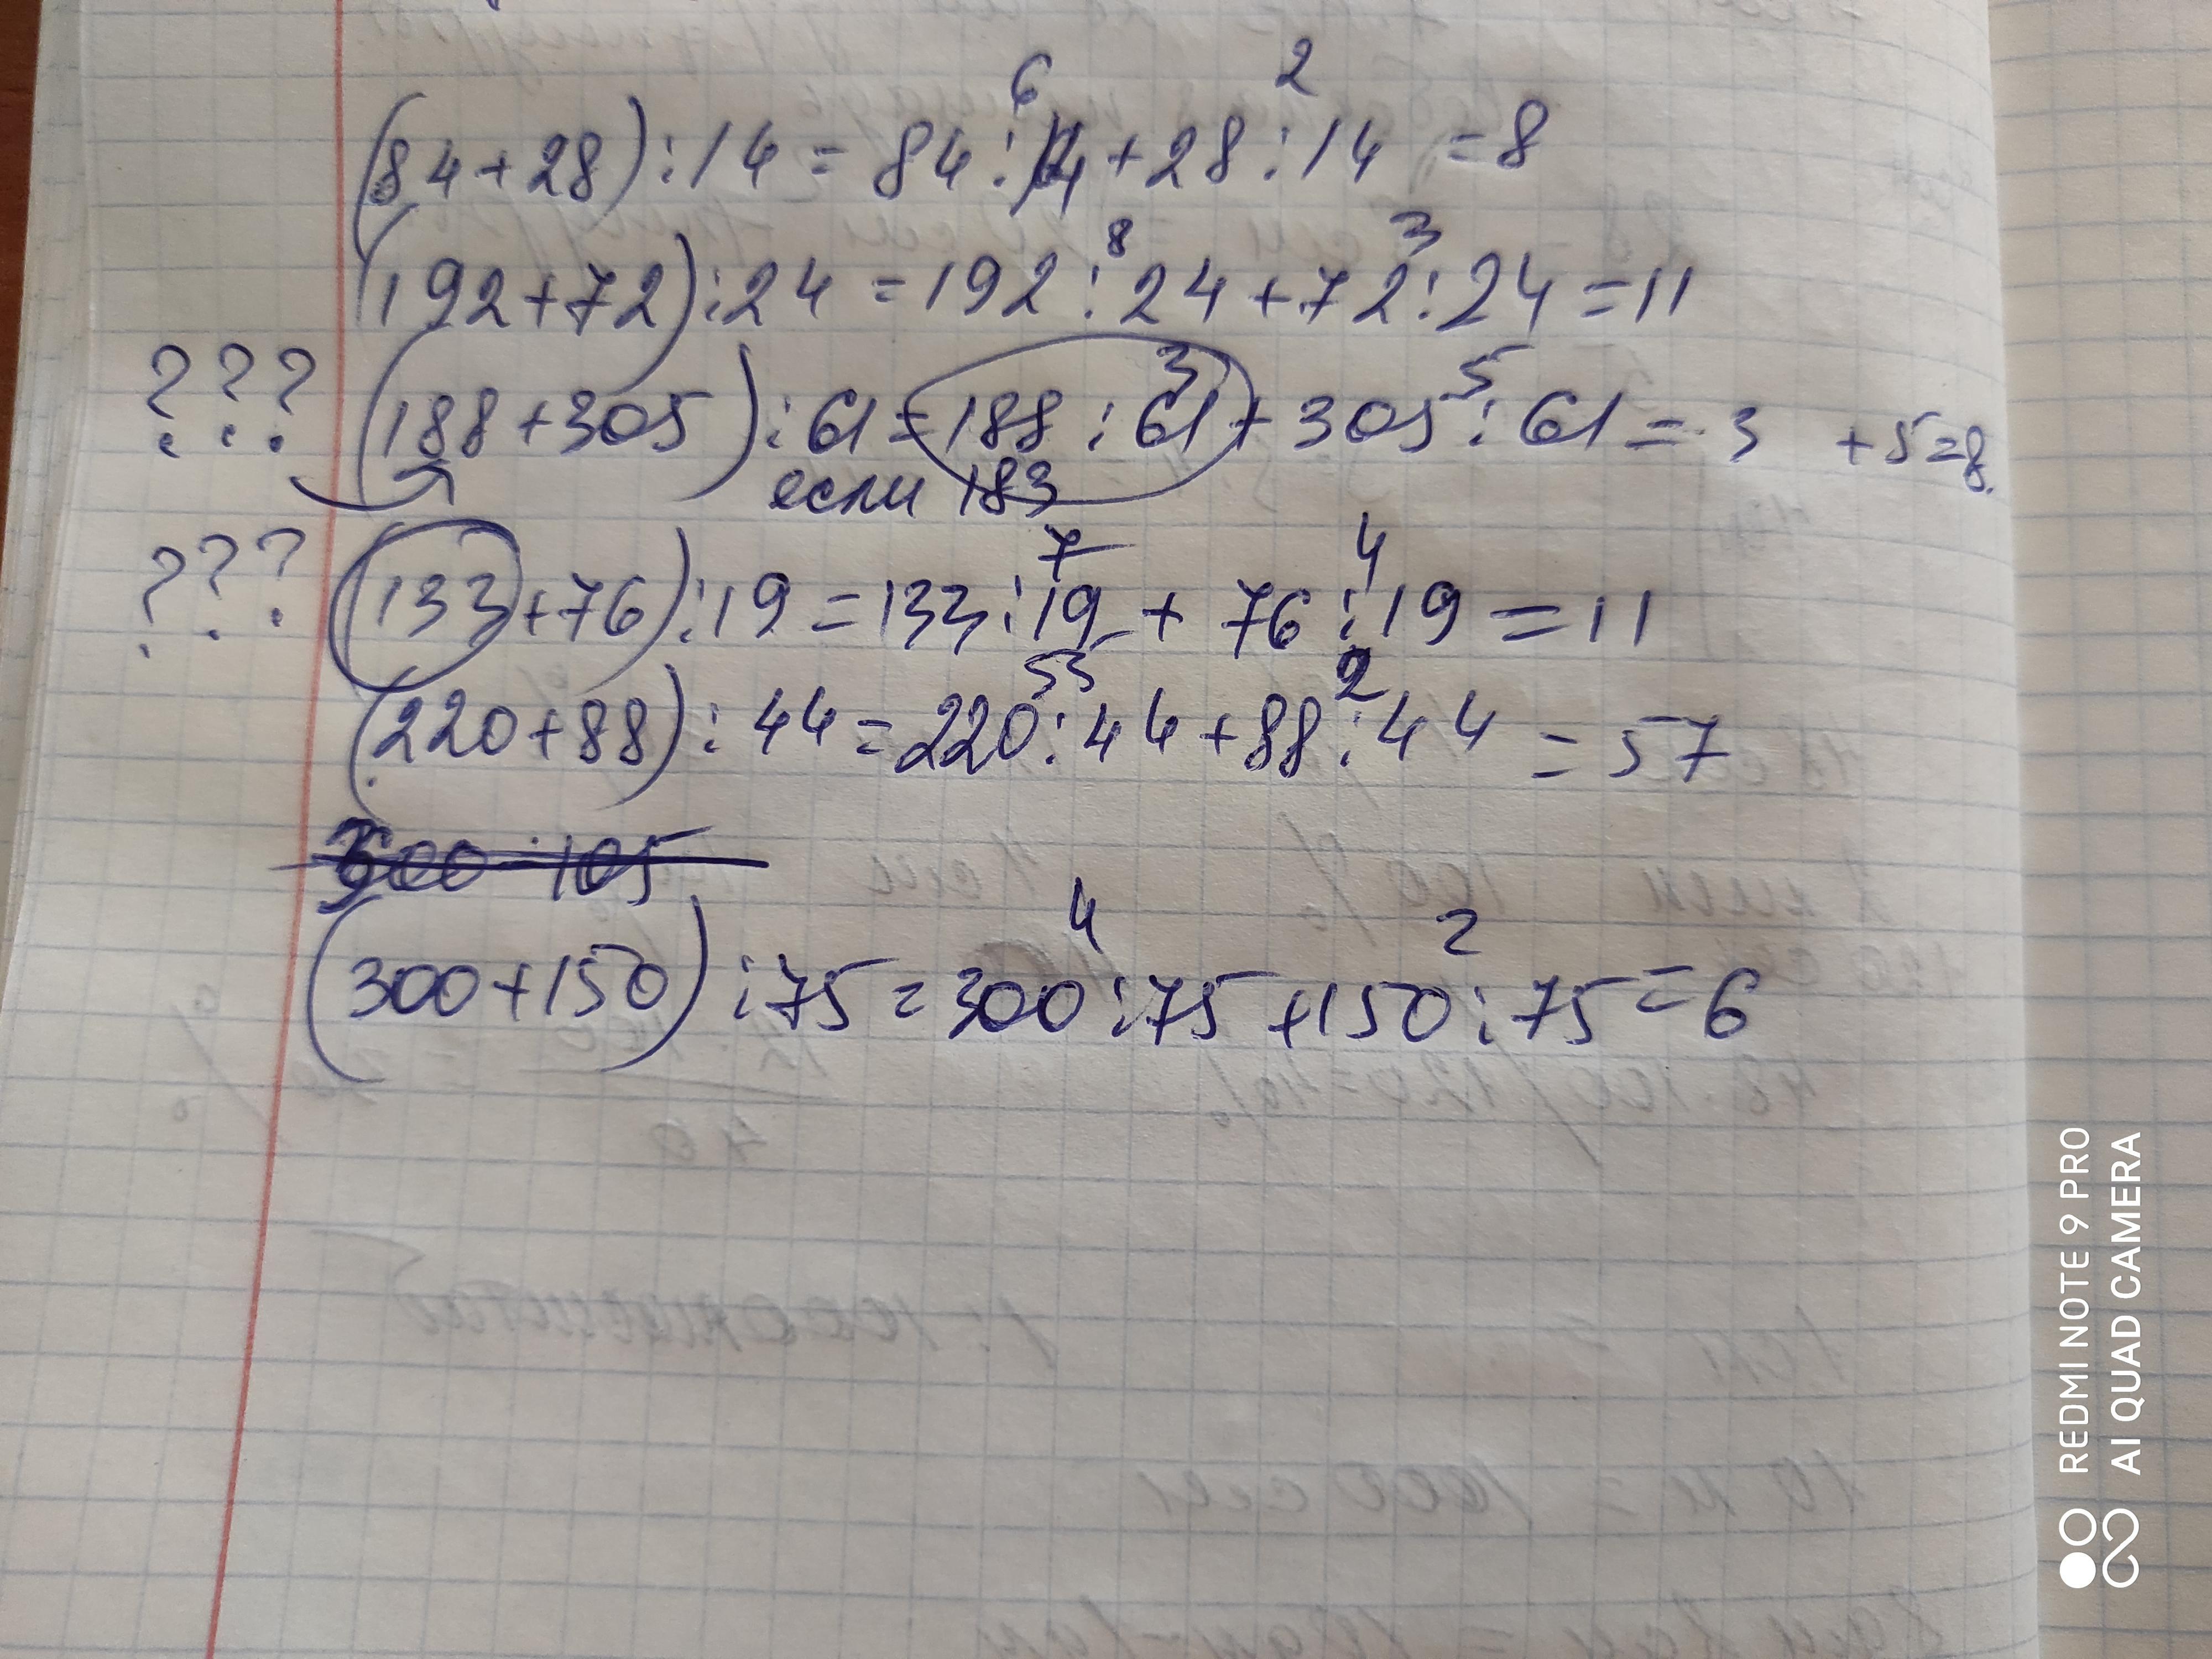 6 2
(84+28):14=84:14+28:14=8
8 3
(192+72):24=192:24+72:24=11
3 5
??? (188+305):61=188:61+305:61=3 +5=8.
если 183
7 4
??? (133+76):19=133:19+76:19=11
55 2
(220+88):44=220:44+88:44=57
300 105
4 2
(300+150):75=300:75+150:75=6
REDMI NOTE 9 PRO
AI QUAD CAMERA